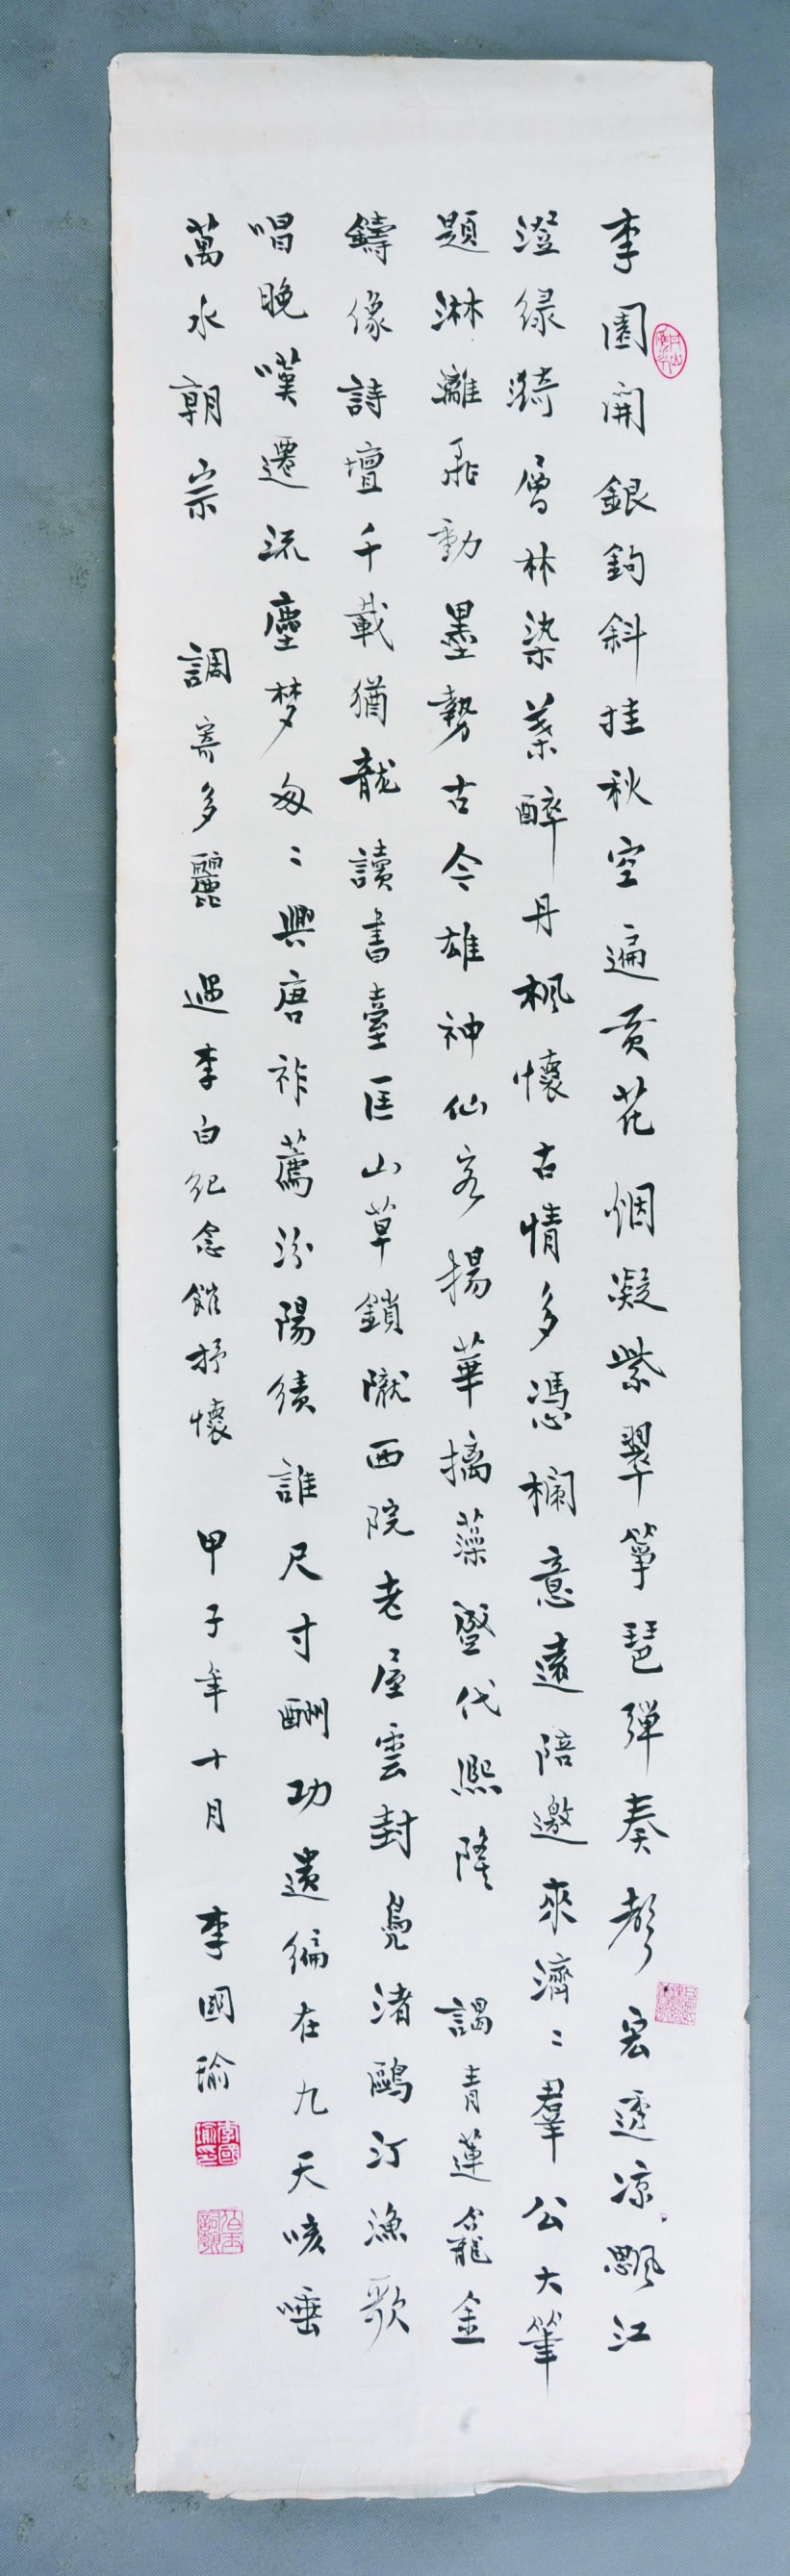 李園開銀鉤斜挂秋空遍黃花烟凝紫翠箏琶彈奏聲宏透凉飔江
澄绿漪層林染葉醉丹楓懷古情多憑欄意遠陪邀來濟〻羣公大筆
題淋灕飛動墨勢古今雄神仙客揚華摛藻盛代熙隆 謁青蓮龕金
鑄像詩壇千載猶龍讀書臺匡山草鎖隴西院老屋雲封鳧渚鷗汀漁歌
唱晚嘆遷流塵梦匆〻興唐祚薦汾陽绩誰尺寸酬功遺编在九天咳唾
萬水朝宗 調寄多麗 過李白纪念館抒懷 甲子年十月 李國瑜
李國瑜印